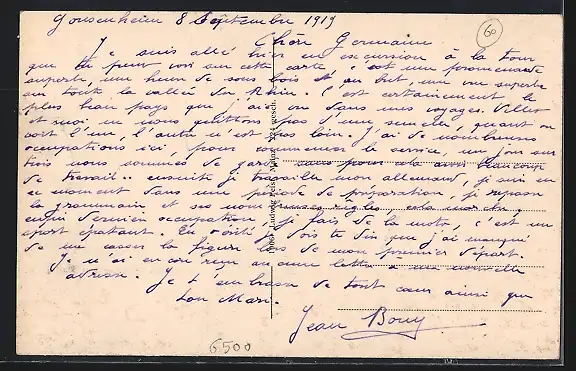 Gonsenheim 8 Septembre 1919
60
Chère Germaine
Je suis allé hier en excursion à la tour
que tu peux voir sur cette carte, c'est une promenade
superbe, une heure de sous bois et au but, une vue superbe
sur toute la vallée du Rhin. C'est certainement le
plus beau pays que j'aie vu dans mes voyages.
et moi ne nous quittons pas d'une semelle, quand on
voit l'un, l'autre n'est pas loin. J'ai de nombreuses
occupations ici, pour commencer le service, un jour sur
trois nous sommes de garde, sans pour cela avoir beaucoup
de travail.. ensuite je travaille mon allemand, je suis en
ce moment dans une période de préparation, je repasse
la grammaire et ses nombreuses règles, cela marche.
enfin dernière occupation, je fais de la moto, c'est un
sport épatant. En vérité je dois te dire que j'ai manqué
de me casser la figure lors de mon premier départ.
Je n'ai encore reçu aucune lettre à ma nouvelle
adresse. Je t'embrasse de tout cœur ainsi que
ton Mari.
Jean
6500
Ludwig Feist, Mainz gesch.